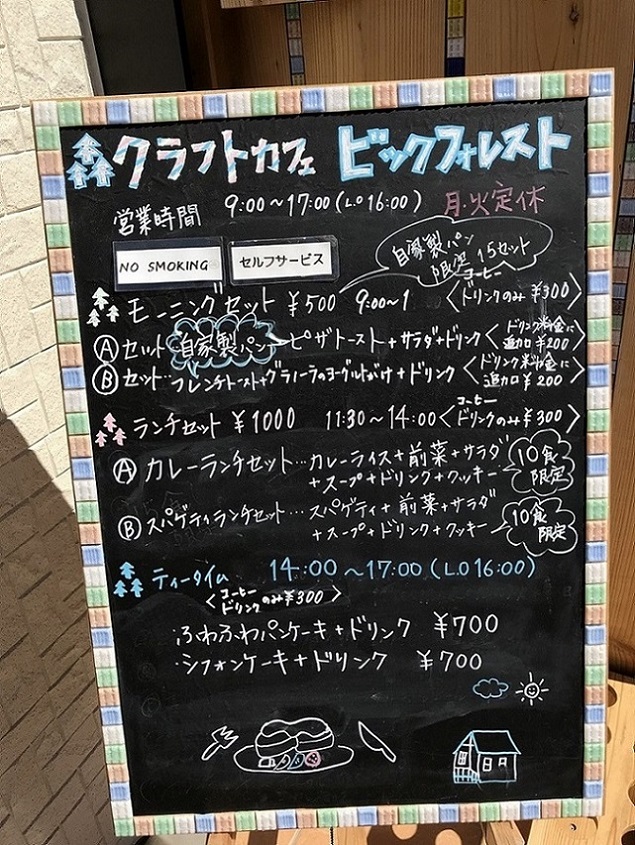 クラフトカフェ ビックフォレスト
営業時間 9:00～17:00(L.O 16:00) 月・火定休
NO SMOKING
セルフサービス
自家製パン
限定15セット
モーニングセット ¥500 9:00～1
コーヒー
ドリンクのみ ¥300
Ⓐ セット 自家製パン ピザトースト+サラダ+ドリンク
ドリンク料金に
追加 ¥200
Ⓑ セット‥フレンチトースト+グラノーラのヨーグルトがけ+ドリンク
ドリンク料金に
追加 ¥200
ランチセット ¥1000 11:30～14:00
コーヒー
ドリンクのみ ¥300
Ⓐ カレーランチセット…カレーライス+前菜+サラダ
+スープ+ドリンク+クッキー
10食
限定
Ⓑ スパゲティランチセット…スパゲティ+前菜+サラダ
+スープ+ドリンク+クッキー
10食
限定
ティータイム 14:00～17:00(L.O 16:00)
コーヒー
ドリンクのみ ¥300
・ふわふわパンケーキ+ドリンク ¥700
・シフォンケーキ+ドリンク ¥700